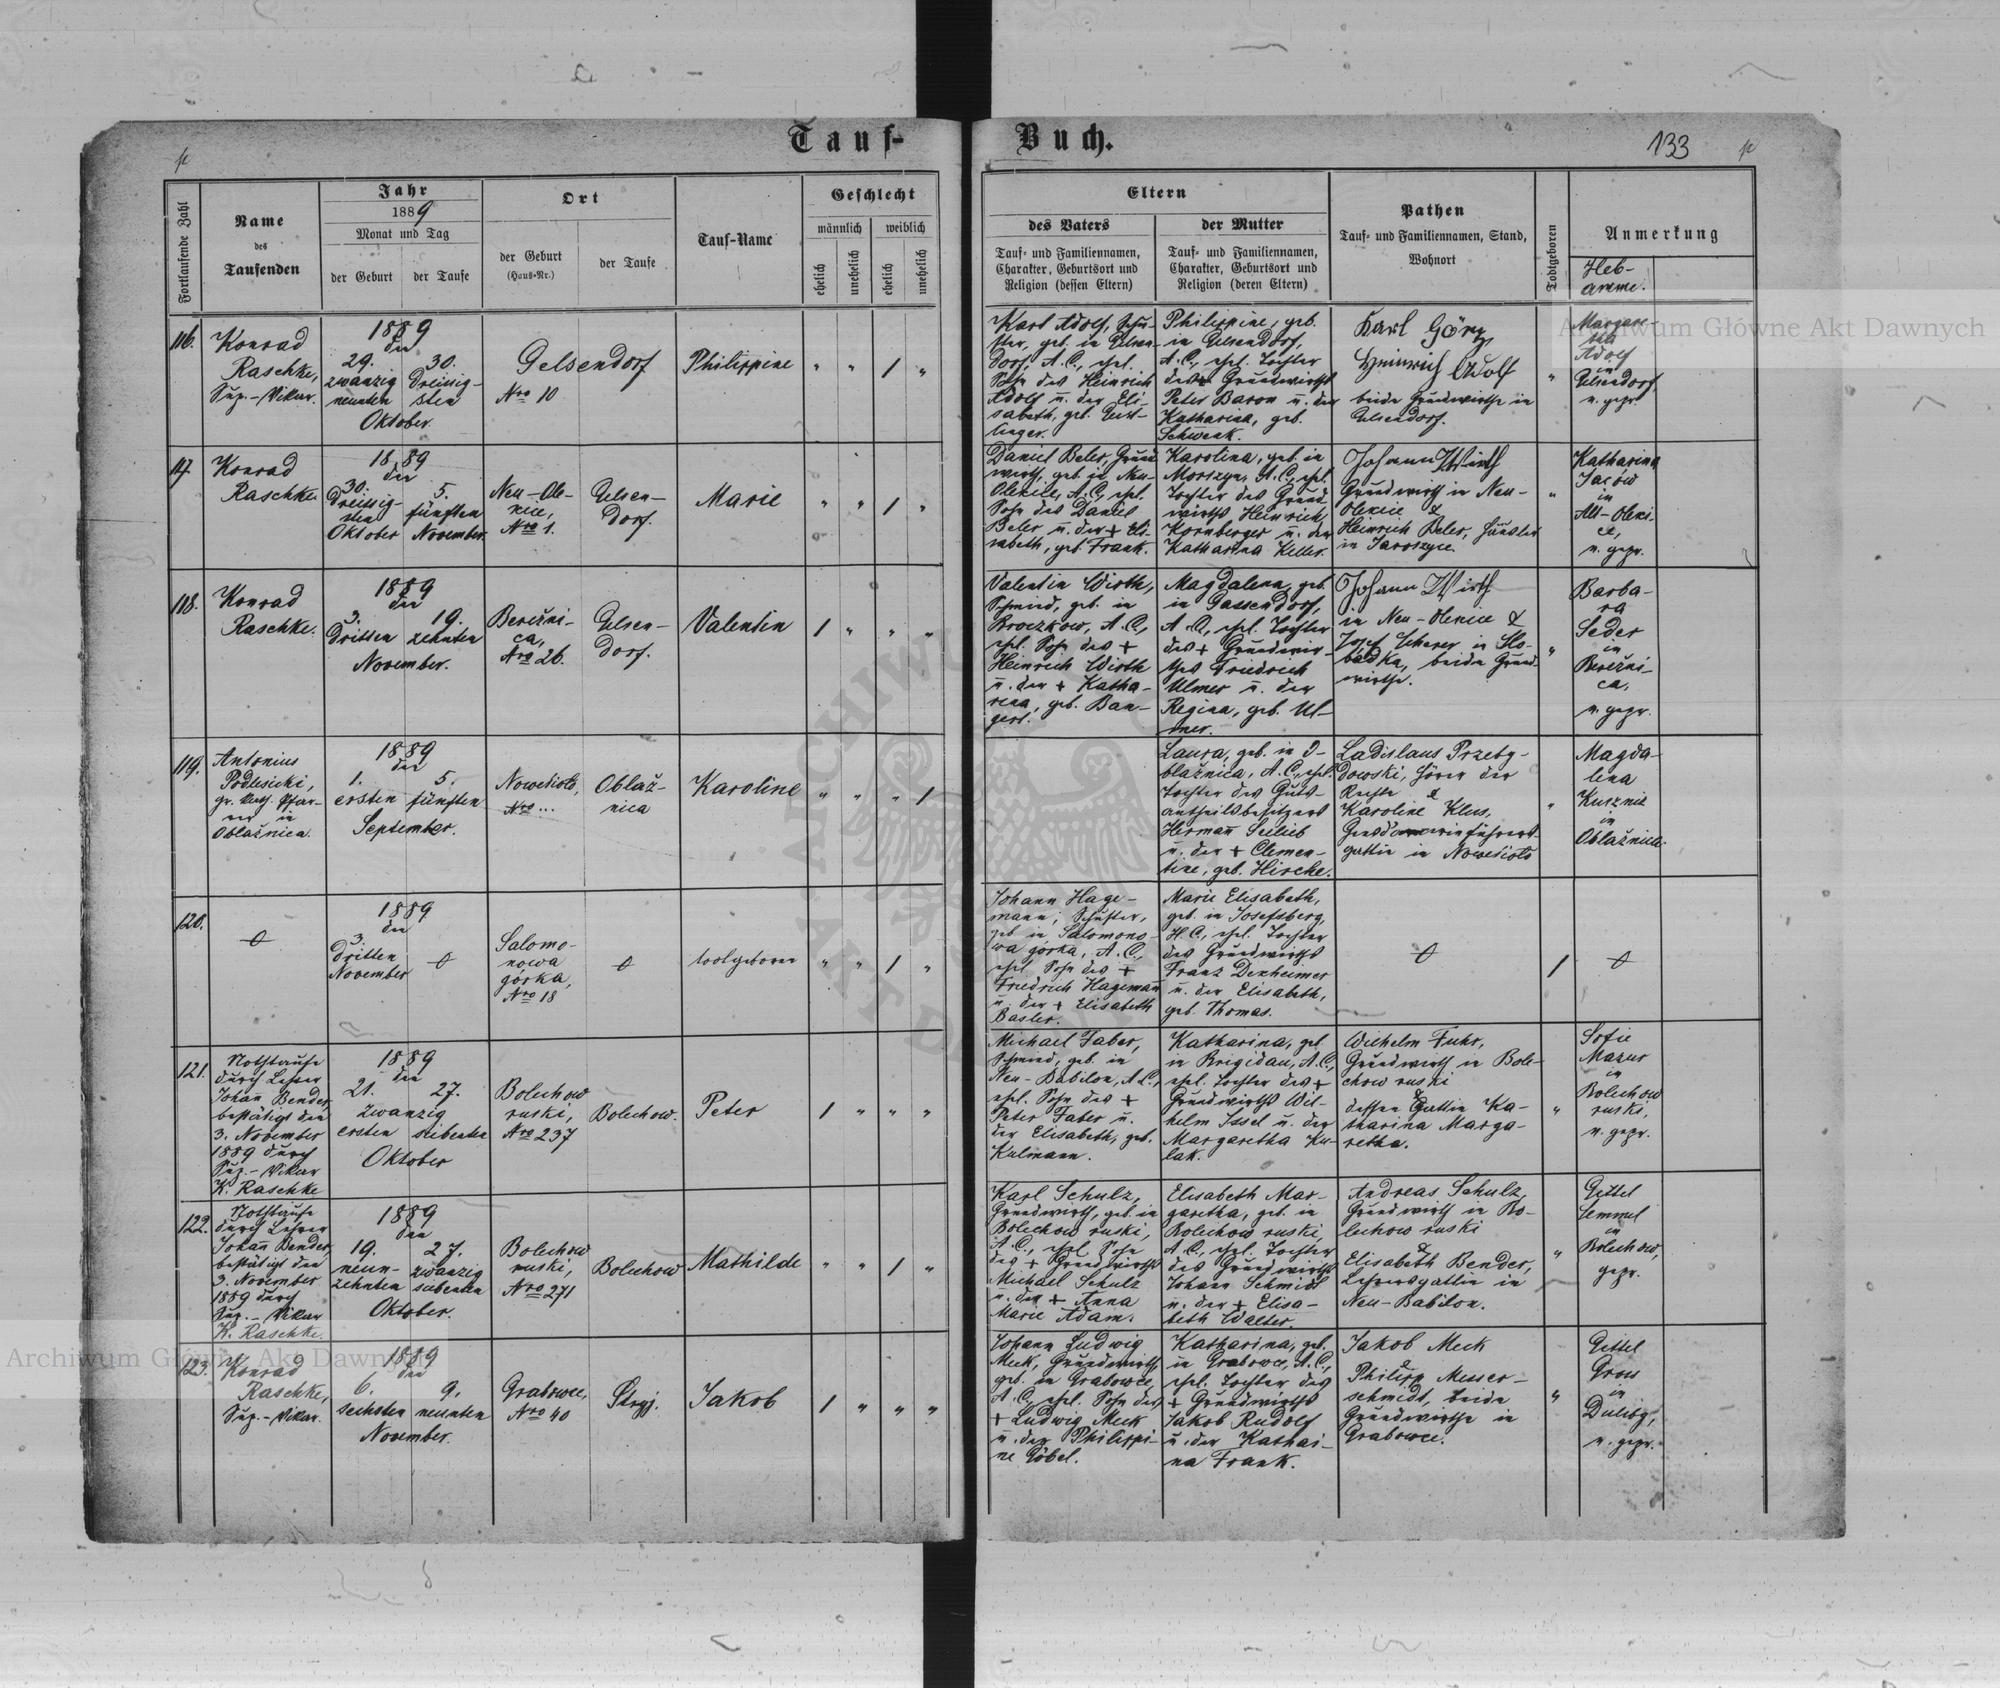 Tauf-Buch.
133
Fortlaufende Zahl
Name
des
Taufenden
Jahr
1889
Monat und Tag
der Geburt
der Taufe
Ort
der Geburt
(Haus-Nr.)
der Taufe
Tauf-Name
Geschlecht
männlich
weiblich
ehelich
unehelich
ehelich
unehelich
Eltern
des Vaters
Tauf- und Familiennamen,
Charakter, Geburtsort und
Religion (dessen Eltern)
der Mutter
Tauf- und Familiennamen,
Charakter, Geburtsort und
Religion (deren Eltern)
Pathen
Tauf- und Familiennamen, Stand,
Wohnort
Todtgeboren
Anmerkung
Heb-
amme.
116.
Konrad
Raschke,
Sup.-Vikar.
1889
den
29. 30.
zwanzig Dreissig-
neunten sten
Oktober.
Gelsendorf
Nro 10
Philippine
" " 1 "
Karl Adolf, Schu-
ster, geb. in Gelsen-
dorf, A.C., ehel.
Sohn des Heinrich
Adolf u. der Eli-
sabeth, geb.
Philippine, geb.
in Gelsendorf,
A.C., ehel. Tochter
des Grundwirths
Peter Baron u. der
Katharina, geb.
Schwenk.
Karl Görz
Heinrich Adolf
beide Grundwirthe in
Gelsendorf.
"
Margare-
tha
Adolf
in
Gelsendorf,
n. gepr.
117.
Konrad
Raschke.
1889
den
30. 5.
Dreissig- fünften
sten
Oktober November.
Neu-Ole-
nice,
Nro 1.
Gelsen-
dorf.
Marie
" " 1 "
Daniel Beler, Grund-
wirth, geb. in Neu-
A.C., ehel.
Sohn des Daniel
Beler u. der + Eli-
sabeth, geb. Frank.
Karolina, geb. in
Morszyn, A.C., ehel.
Tochter des Grund-
wirths Heinrich
Kornberger u. der
Katharina Keller.
Johann Wirth
Grundwirth in Neu-
&
Heinrich Beler, Häusler
in Jaroszyce.
"
Katharina
Jaców
in
Alt-Oleni-
ce,
n. gepr.
118.
Konrad
Raschke.
1889
den
3. 19.
Dritten zehnten
November.
Berežni-
ca,
Nro 26.
Gelsen-
dorf.
Valentin
1 " " "
Valentin Wirth,
Schmied, geb. in
A.C.,
ehel. Sohn des +
Heinrich Wirth
u. der + Katha-
rina, geb. Ban-
gert.
Magdalena, geb.
in Gassendorf,
A.C., ehel. Tochter
des + Grundwir-
thes Friedrich
Ulmer u. der
Regina, geb. Ul-
mer.
Johann Wirth
in Neu-Olenice &
Josef Scherer in Slo-
bodka, beide Grund-
wirthe.
"
Barba-
ra
Seder
in
Berežni-
ca,
n. gepr.
119.
Antonius
Podlesicki,
gr. kath. Pfar-
rer in
Oblažnica.
1889
den
1. 5.
ersten fünften
September.
Nowesiolo,
Nro ...
Oblaž-
nica
Karoline
" " " 1
Laura, geb. in O-
blažnica, A.C., ehel.
Tochter des Guts-
antheilsbesitzers
Herman Seilieb
u. der + Clemen-
tine, geb. Hirche.
Ladislaus Przeby-
dowski, Hörer der
Rechte &
Karoline Klus,
Gensdarmerieführers-
gattin in Nowesiolo
"
Magda-
lena
Kuznie
in
Oblažnica.
120.
1889
den
3.
Dritten
November
Salomo-
nowa
górka,
Nro 18
todtgeboren
" " 1 "
Johann Hage-
mann, Schuster,
geb. in Salomono-
wa górka, A.C.,
ehel. Sohn des +
Friedrich Hagemann
u. der + Elisabeth
Basler.
Marie Elisabeth,
geb. in Josefsberg,
H.C., ehel. Tochter
des Grundwirths
Franz Dexheimer
u. der Elisabeth,
geb. Thomas.
1
121.
Nothtaufe
durch Lehrer
Johan Bender,
bestätigt den
3. November
1889 durch
Sup.-Vikar
K. Raschke
1889
den
21. 27.
zwanzig
ersten siebenten
Oktober
Bolechow
ruski,
Nro 237
Bolechow.
Peter
1 " " "
Michael Faber,
Schmied, geb. in
Neu-Babilon, A.C.,
ehel. Sohn des +
Peter Faber u.
der Elisabeth, geb.
Kulmann.
Katharina, geb.
in Brigidau, A.C.,
ehel. Tochter des +
Grundwirths Wil-
helm Issel u. der
Margaretha Ku-
lak.
Wilhelm Fuhr,
Grundwirth in Bole-
chow ruski
&
dessen Gattin Ka-
tharina Marga-
retha.
"
Sofie
Mazur
in
Bolechow
ruski,
n. gepr.
122.
Nothtaufe
durch Lehrer
Johan Bender,
bestätigt den
3. November
1889 durch
Sup.-Vikar
K. Raschke.
1889
den
19. 27.
neun- zwanzig
zehnten siebenten
Oktober.
Bolechow
ruski,
Nro 271
Bolechow
Mathilde
" " 1 "
Karl Schulz,
Grundwirth, geb. in
Bolechow ruski,
A.C., ehel. Sohn
des + Grundwirths
Michael Schulz
u. der + Anna
Marie Adam.
Elisabeth Mar-
garetha, geb. in
Bolechow ruski,
A.C., ehel. Tochter
des Grundwirths
Johann Schmidt
u. der + Elisa-
beth Walter.
Andreas Schulz,
Grundwirth in Bo-
lechow ruski
&
Elisabeth Bender,
Lehrersgattin in
Neu-Babilon.
"
Gittel
Semmel
in
Bolechow,
gepr.
123.
Konrad
Raschke,
Sup.-Vikar.
1889
den
6. 9.
sechsten neunten
November.
Grabowce,
Nro 40
Stryj.
Jakob
1 " " "
Johann Ludwig
Meck, Grundwirth,
geb. in Grabowce,
A.C., ehel. Sohn des
+ Ludwig Meck
u. der Philippi-
ne Göbel.
Katharina, geb.
in Grabowce, A.C.,
ehel. Tochter des
+ Grundwirths
Jakob Rudolf
u. der Kathai-
na Frank.
Jakob Meck
&
Philipp Messer-
schmidt, beide
Grundwirthe in
Grabowce.
"
Gittel
Gross
in
Duliby,
n. gepr.
Archiwum Główne Akt Dawnych
Archiwum Główne Akt Dawnych